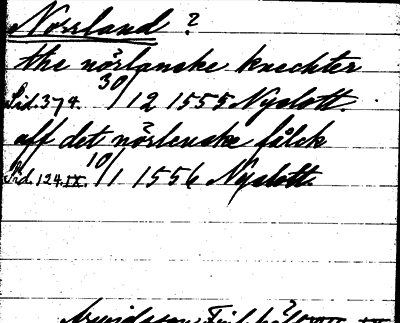 Norrland ?
the nörlanske knechter
Sid. 374. 30/12 1555 Nyslott.
aff det nörlenske fålck
Sid. 124. IX. 10/1 1556 Nyslott.
Arwidsson,